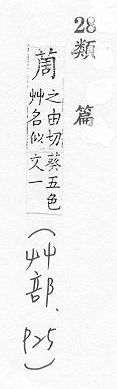 28
類篇
䓟
之由切
艸名似
葵五色
文一
(艸部、P25)